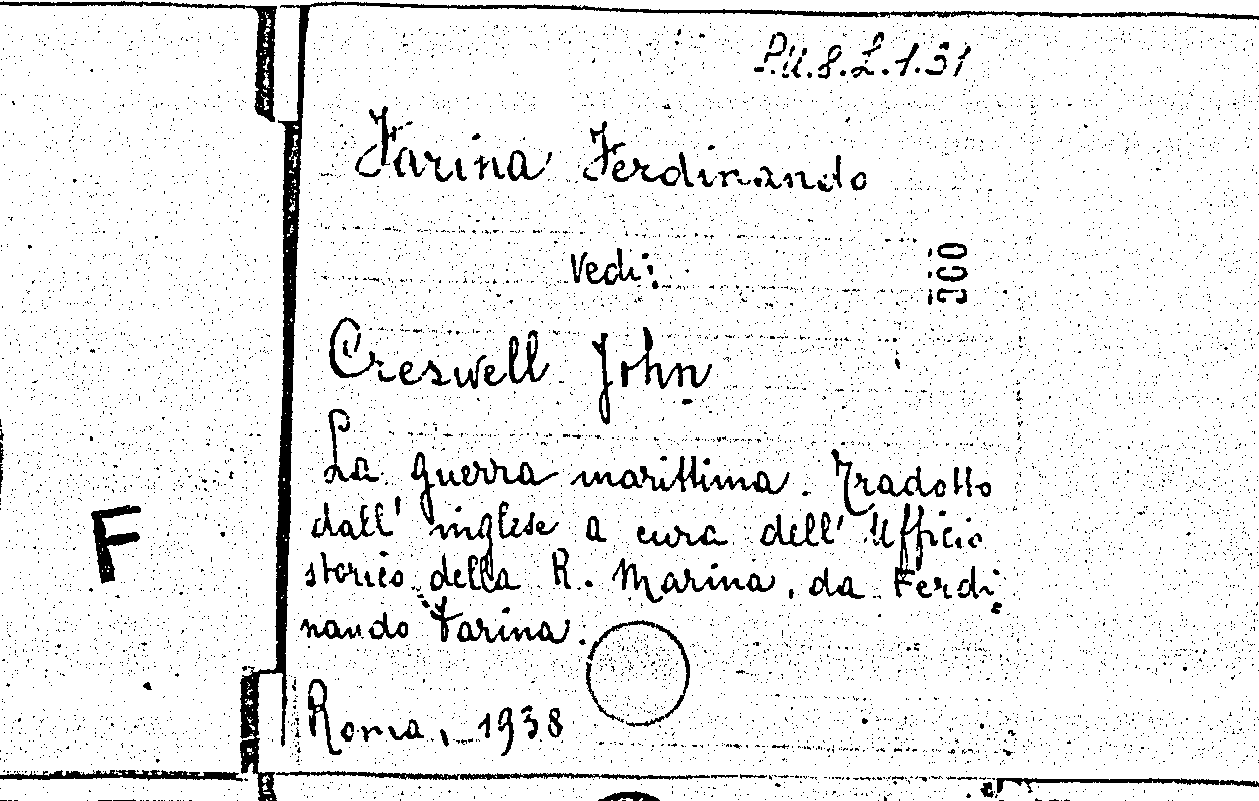 P.U.8.L.1.31
Farina Ferdinando
Vedi:
Creswell John
La guerra marittima. Tradotto
dall' inglese a cura dell' Ufficio
storico della R. Marina, da Ferdi
nando Farina.
F
Roma, 1938